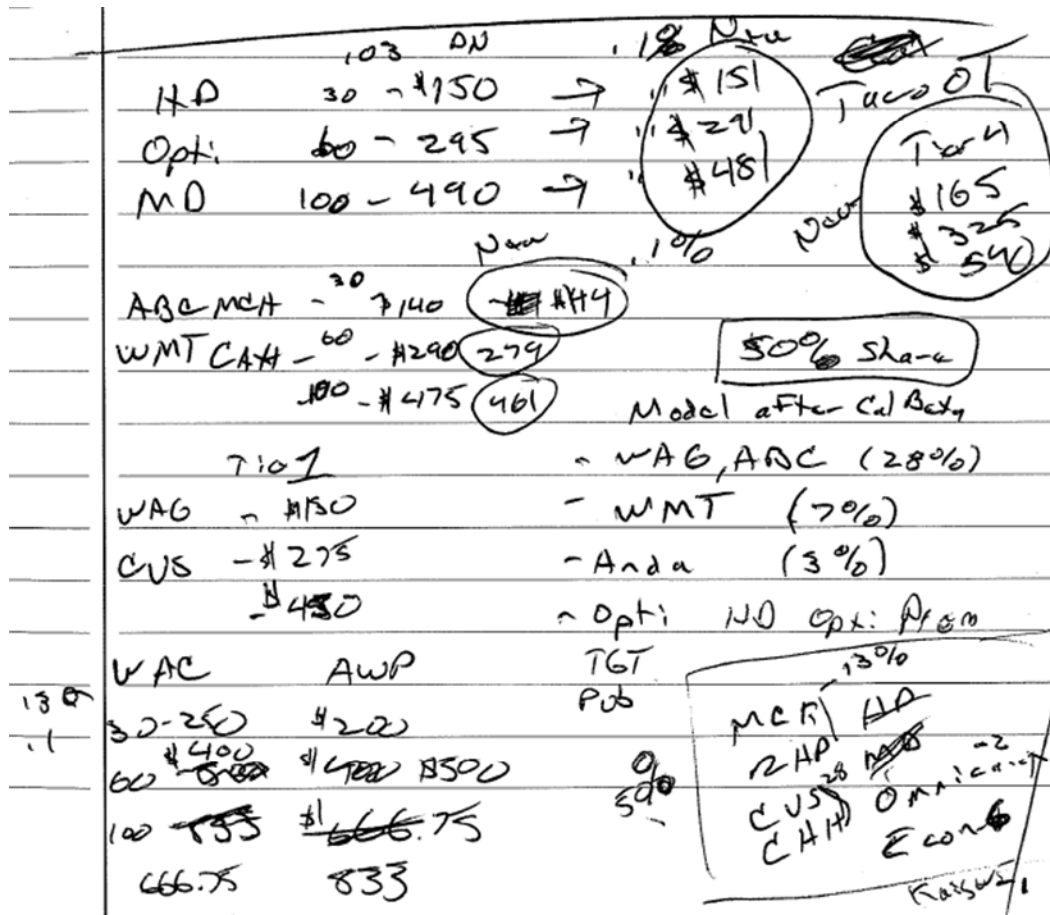 .03 DN .1%
HD 30 - $150 → " $151
Opti 60 - 295 → " $291
MD 100 - 490 → " $481
Tier 4
$165
$325
$540
.1%
ABC MCK - 30 $140 $144
WMT CAH - 60 - $290 279
100 - $475 461
50% Share
Model after Cal Beta
Tier 1
WAG - $150
CVS - $275
- $450
- WAG, ABC (28%)
- WMT (7%)
- Anda (3%)
- Opti HD Opti Prem
TGT
Pub
WAC AWP
30-250 $200
$400
60 $500
100 833 $1666.75
666.75 833
5%
.3%
MCK HD
RAD MD
CVS 28 Omnicare -2
CAH Econ 6
Kaiser 1